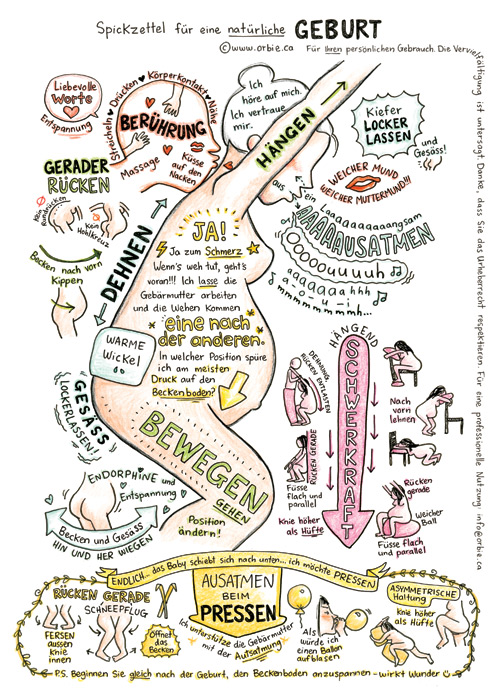 Spickzettel für eine natürliche GEBURT
©www.orbie.ca Für Ihren persönlichen Gebrauch. Die Vervielfältigung ist untersagt. Danke, dass Sie das Urheberrecht respektieren. Für eine professionelle Nutzung: info@orbie.ca
Liebevolle
Worte
Entspannung
Streicheln Drücken Körperkontakt Nähe
BERÜHRUNG
Massage
Küsse
auf den
Nacken
Ich
höre auf mich.
Ich vertraue
mir.
HÄNGEN
Kiefer
LOCKER
LASSEN
und
Gesäss!
WEICHER MUND
WEICHER MUTTERMUND!!!
GERADER
RÜCKEN
Kein
Rundrücken
Kein
Hohlkreuz
Becken nach vorn
Kippen
DEHNEN
ein
aus
Laaaaaaaaaaaangsam
AAAAAUSATMEN
OOOOOuuuuuh
aaaaaaahhh
a-o-u-i-...
mmmmmmmmh...
JA!
Ja zum Schmerz
Wenn's weh tut, geht's
voran!!! Ich lasse die
Gebärmutter arbeiten
und die Wehen kommen
eine nach
der anderen.
In welcher Position spüre
ich am meisten
Druck auf den
Beckenboden?
WARME
Wickel
GESÄSS
LOCKERLASSEN!
BEWEGEN
GEHEN
Position
ändern!
ENDORPHINE und
Entspannung
Becken und Gesäss
HIN UND HER WIEGEN
HÄNGEND
SCHWERKRAFT
DEHNUNG
RÜCKEN ENTLASTEN
RÜCKEN GERADE
Füsse
flach und
parallel
Knie höher
als Hüfte
Nach
vorn
lehnen
Rücken
gerade
Weicher
Ball
Füsse flach
und parallel
ENDLICH... das Baby schiebt sich nach unten... ich möchte PRESSEN
RÜCKEN GERADE
SCHNEEPFLUG
FERSEN
aussen
Knie
innen
Öffnet
das
Becken
AUSATMEN
BEIM
PRESSEN
Ich unterstütze die Gebärmutter
mit der Ausatmung
Als
würde ich
einen Ballon
aufblasen
ASYMMETRISCHE
Haltung
Knie höher
als Hüfte
P.S. Beginnen Sie gleich nach der Geburt, den Beckenboden anzuspannen - wirkt Wunder